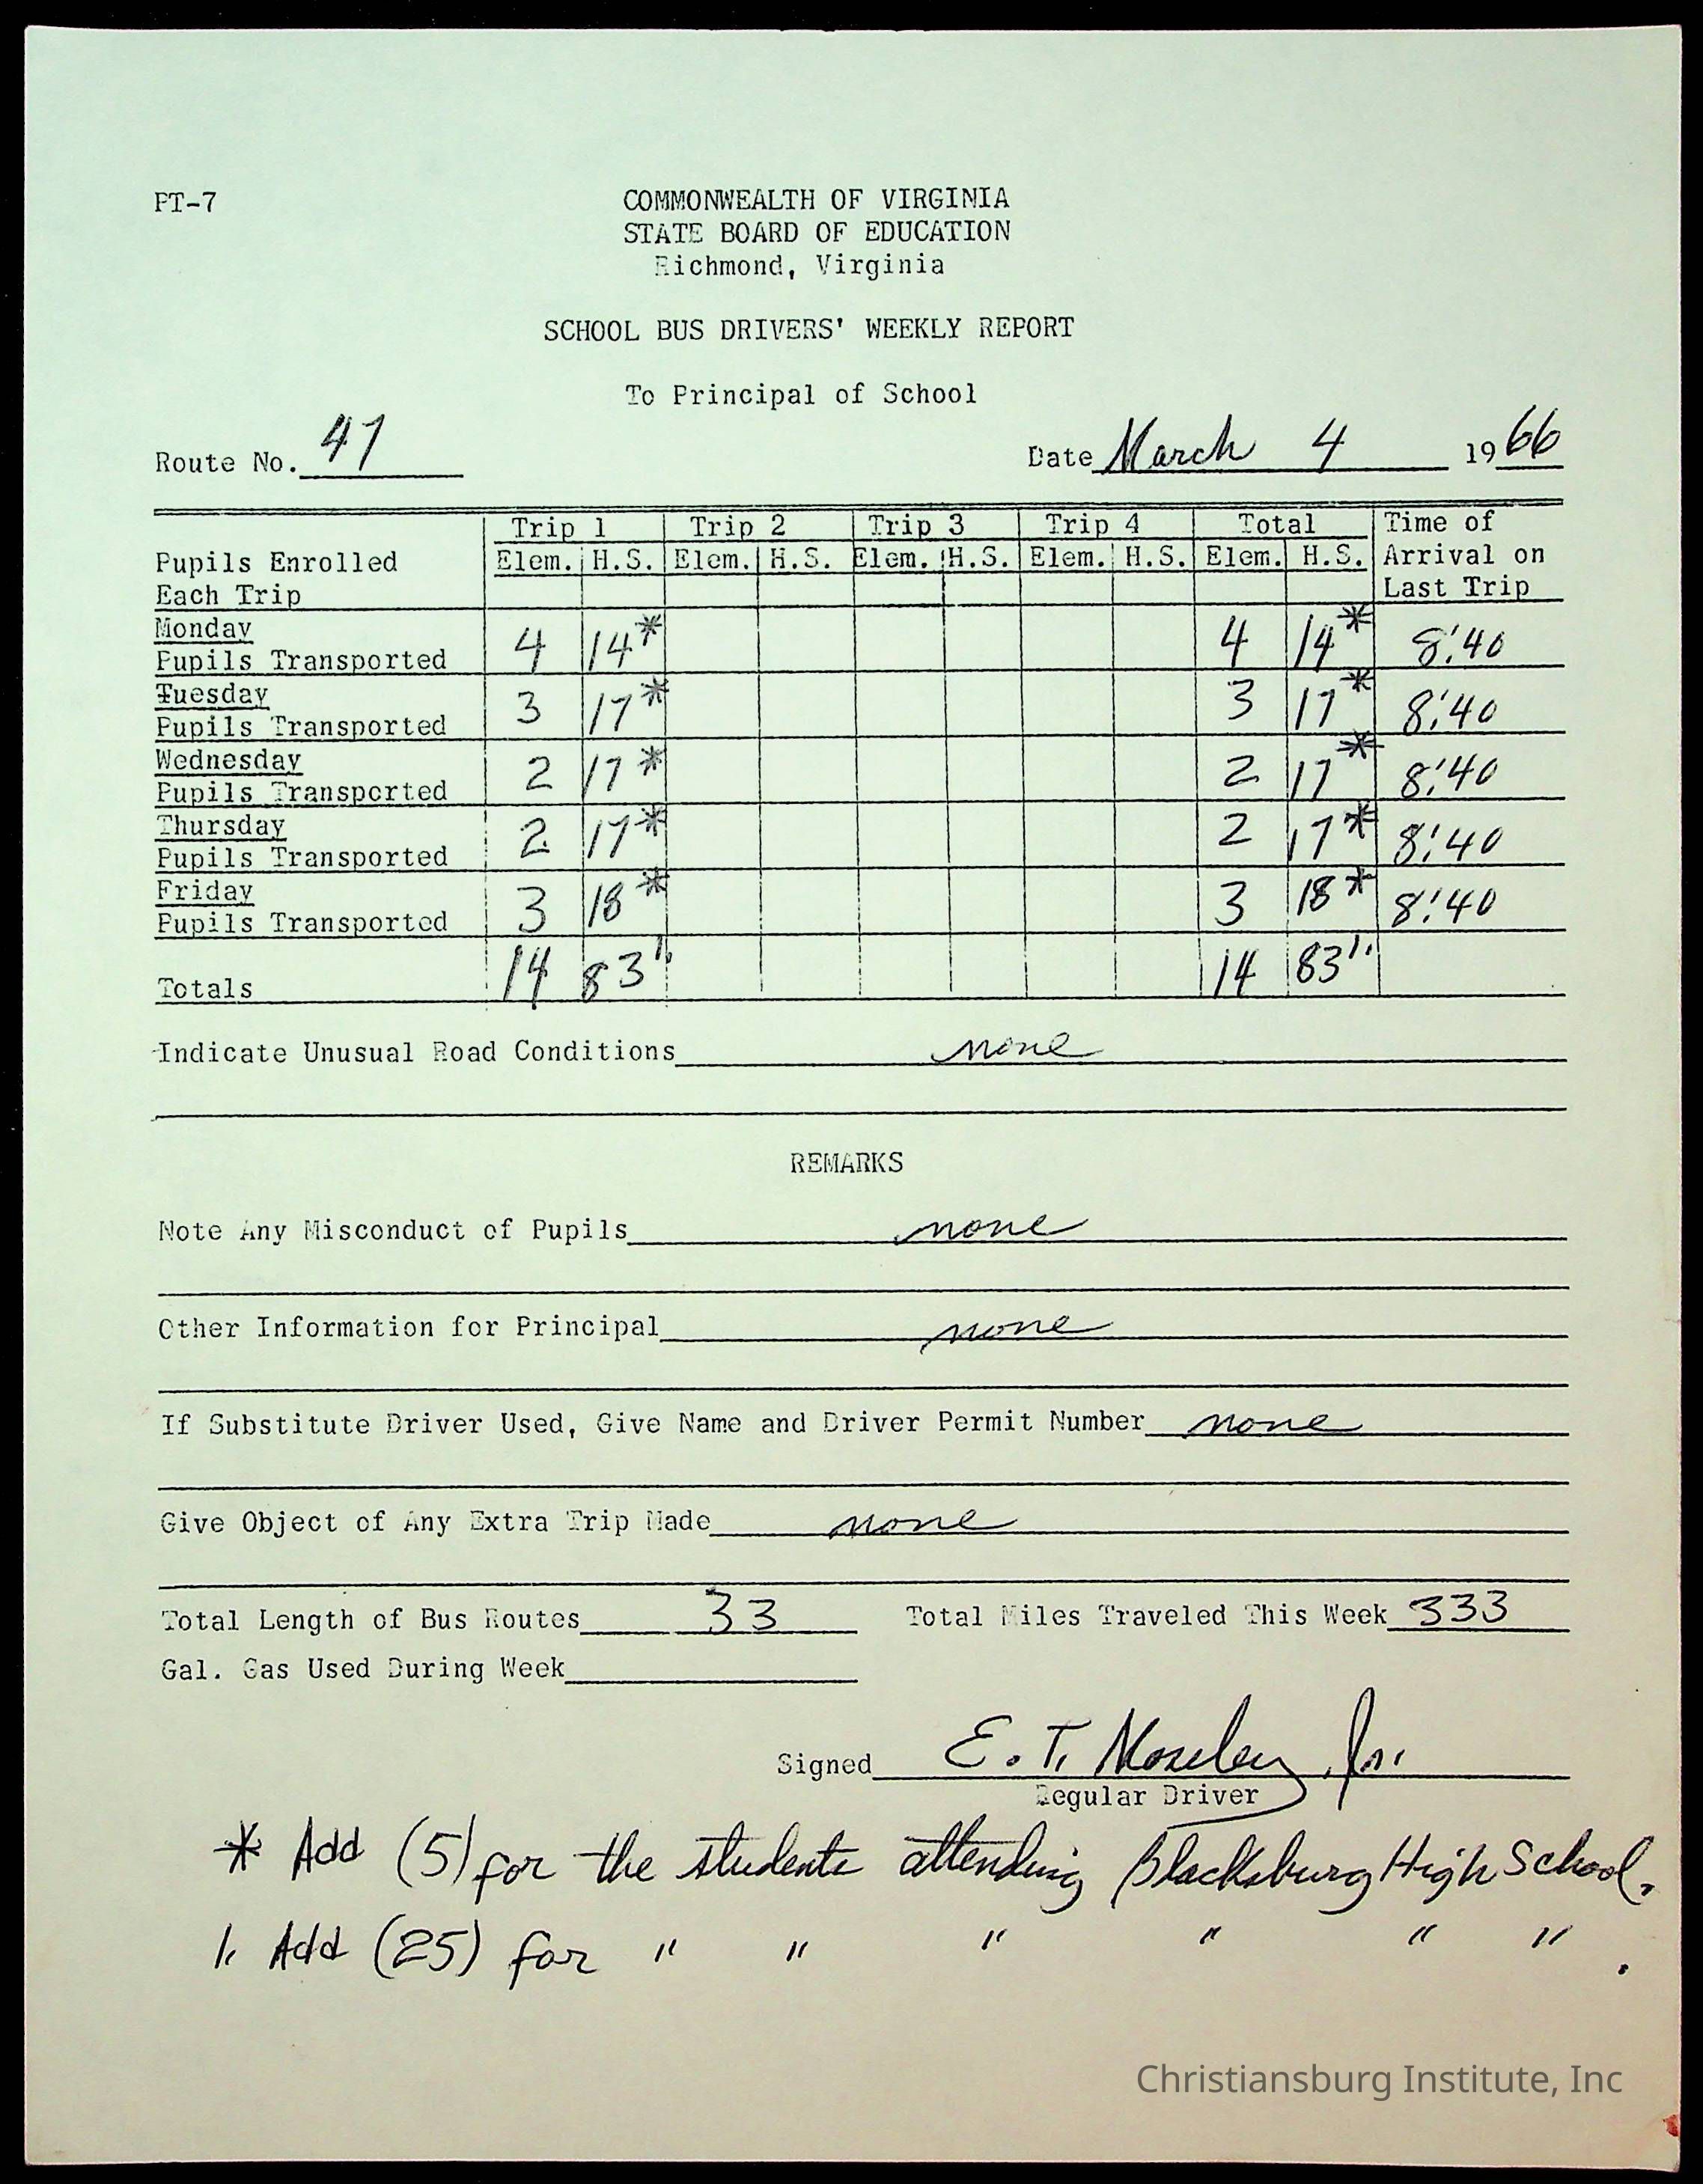 PT-7
COMMONWEALTH OF VIRGINIA
STATE BOARD OF EDUCATION
Richmond, Virginia
SCHOOL BUS DRIVERS' WEEKLY REPORT
To Principal of School
Route No. 47 Date March 4 1966
Trip 1 Trip 2 Trip 3 Trip 4 Total Time of
Pupils Enrolled Elem. H.S. Elem. H.S. Elem. H.S. Elem. H.S. Elem. H.S. Arrival on
Each Trip Last Trip
Monday
Pupils Transported 4 14* 4 14* 8:40
Tuesday
Pupils Transported 3 17* 3 17* 8:40
Wednesday
Pupils Transported 2 17* 2 17* 8:40
Thursday
Pupils Transported 2 17* 2 17* 8:40
Friday
Pupils Transported 3 18* 3 18* 8:40
Totals 14 83 1. 14 83 1.
Indicate Unusual Road Conditions none
REMARKS
Note Any Misconduct of Pupils none
Other Information for Principal none
If Substitute Driver Used, Give Name and Driver Permit Number none
Give Object of Any Extra Trip Made none
Total Length of Bus Routes 33 Total Miles Traveled This Week 333
Gal. Gas Used During Week
Signed E. T. Moseley, Jr.
Regular Driver
* Add (5) for the students attending Blacksburg High School.
1. Add (25) for " " " " " " .
Christiansburg Institute, Inc